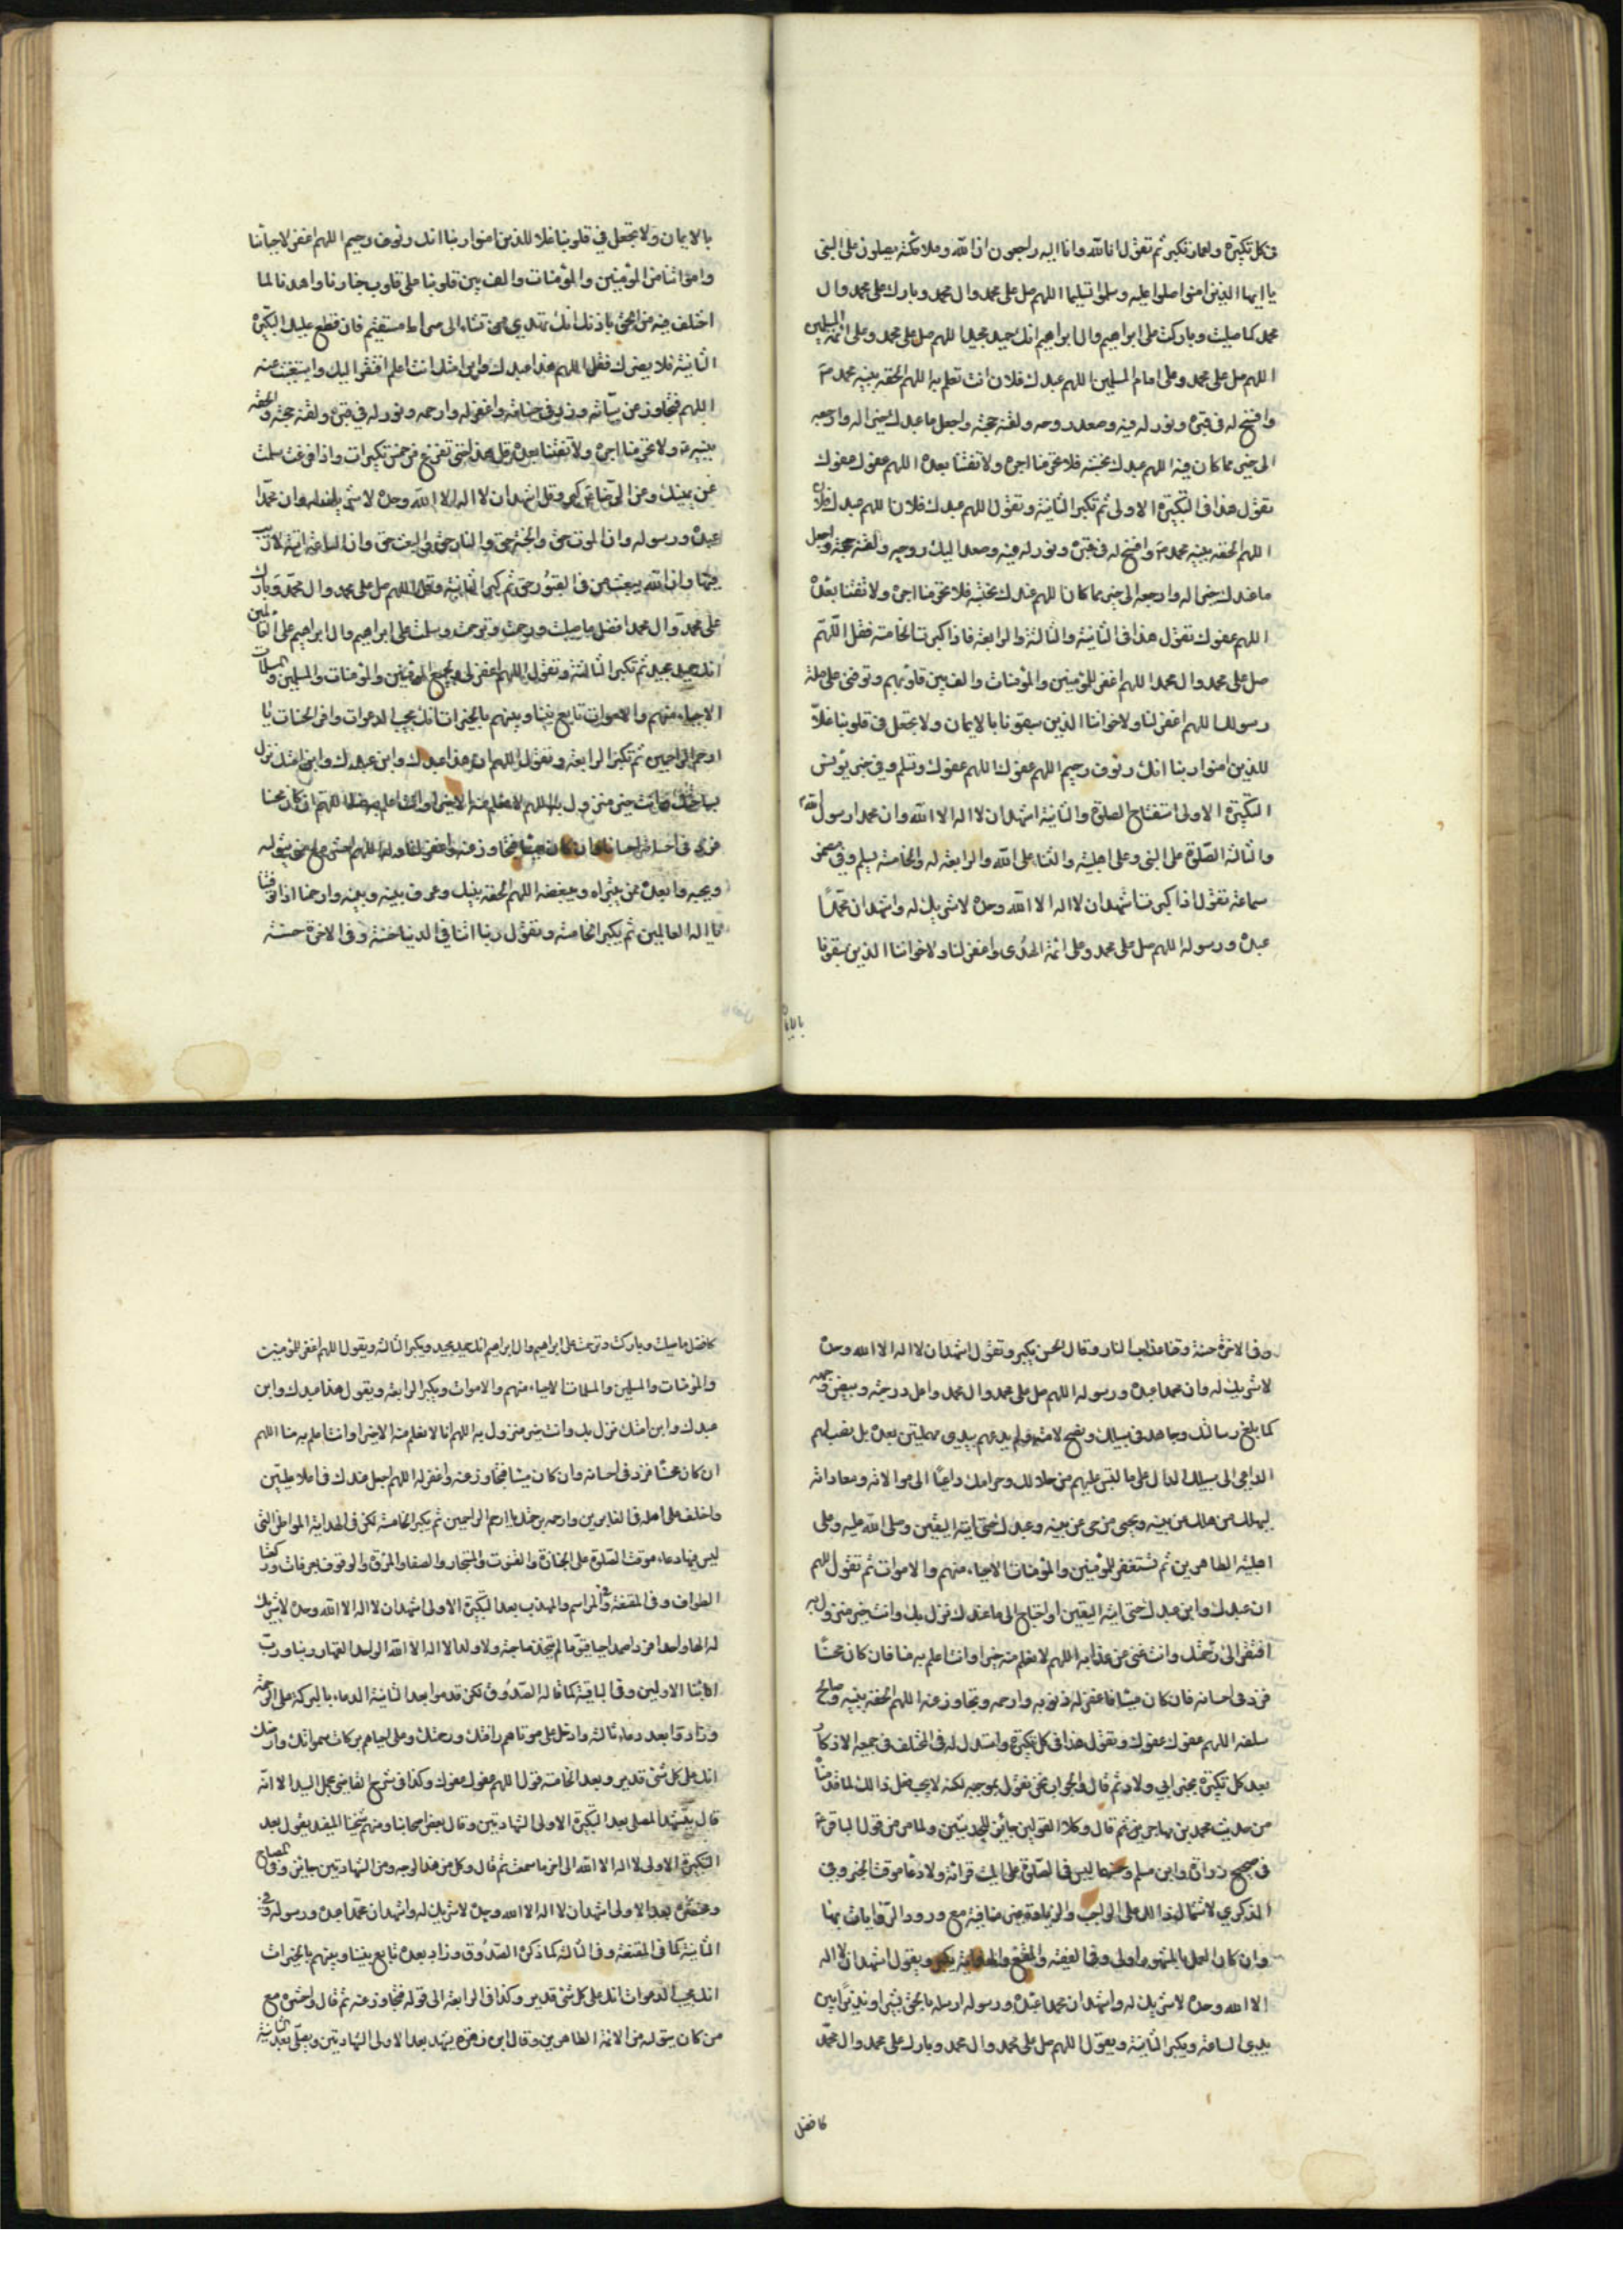 في كل تكبيرة ولعمار تكبر ثم تقول انا لله وانا اليه راجعون ان الله وملائكته يصلون على النبي
يا ايها الذين امنوا صلوا عليه وسلموا تسليما اللهم صل على محمد وال محمد وبارك على محمد وال
محمد كما صليت وباركت على ابراهيم وال ابراهيم انك حميد مجيد اللهم صل على محمد وعلى ائمة المسلمين
اللهم صل على محمد وعلى امام المسلمين اللهم عبدك فلان انت تعلم به اللهم الحقه بنبيه محمد ص
وافسح له في قبره ونور له فيه وصعد روحه ولقنه حجته واجعل ما عندك خيرا له وارجعه
الى خير مما كان فيه اللهم عندك نحتسبه فلا تحرمنا اجره ولا تفتنا بعده اللهم عفوك عفوك
تقول هذا في التكبيرة الاولى ثم تكبر الثانية وتقول اللهم عبدك فلان اللهم عبدك فلان
اللهم الحقه بنبيه محمد ص وافسح له في قبره ونور له فيه وصعد اليك روحه ولقنه حجته واجعل
ما عندك خيرا له وارجعه الى خير مما كان اللهم عندك نحتسبه فلا تحرمنا اجره ولا تفتنا بعده
اللهم عفوك تقول هذا في الثانية والثالثة والرابعة فاذا كبرت الخامسة فقل اللهم
صل على محمد وال محمد اللهم اغفر للمؤمنين والمؤمنات والف بين قلوبهم وتوفني على ملة
رسولك اللهم اغفر لنا ولاخواننا الذين سبقونا بالايمان ولا تجعل في قلوبنا غلا
للذين امنوا ربنا انك رؤوف رحيم اللهم عفوك اللهم عفوك وتسلم وفي خبر يونس
التكبيرة الاولى استفتاح الصلوة والثانية اشهد ان لا اله الا الله وان محمدا رسول الله
والثالثة الصلوة على النبي وعلى اهل بيته والثناء على الله والرابعة له والخامسة يسلم وفي مضمر
سماعة تقول اذا كبرت اشهد ان لا اله الا الله وحده لا شريك له واشهد ان محمدا
عبده ورسوله اللهم صل على محمد وعلى ائمة الهدى واغفر لنا ولاخواننا الذين سبقونا
بالايمان
بالايمان ولا تجعل في قلوبنا غلا للذين امنوا ربنا انك رؤوف رحيم اللهم اغفر لاحيائنا
وامواتنا من المؤمنين والمؤمنات والف بين قلوبنا على قلوب خيارنا واهدنا لما
اختلف فيه من الحق باذنك انك تهدي من تشاء الى صراط مستقيم فان قطع عليك التكبيرة
الثانية فلا يضرك فقل اللهم هذا عبدك وابن امتك انت اعلم افتقر اليك واستغنيت عنه
اللهم فتجاوز عن سيئاته وزد في حسناته واغفر له وارحمه ونور له في قبره ولقنه حجته والحقه
بنبيه ص ولا تحرمنا اجره ولا تفتنا بعده قل هذا حتى تفرغ من خمس تكبيرات واذا فرغت سلمت
عن يمينك وقل اشهد ان لا اله الا الله وحده لا شريك له وان محمدا
عبده ورسوله وان الموت حق والجنة حق والنار حق والبعث حق وان الساعة اتية لا ريب
فيها وان الله يبعث من في القبور ثم كبر الثانية وقل اللهم صل على محمد وال محمد وبارك
على محمد وال محمد افضل ما صليت ورحمت وترحمت وسلمت على ابراهيم وال ابراهيم في العالمين
انك حميد مجيد ثم تكبر الثالثة وتقول اللهم اغفر لي ولجميع المؤمنين والمؤمنات والمسلمين والمسلمات
الاحياء منهم والاموات تابع بيننا وبينهم بالخيرات انك مجيب الدعوات وافر الحسنات يا
ارحم الراحمين ثم تكبر الرابعة وتقول اللهم ان هذا عبدك وابن عبدك وابن امتك نزل
بساحتك وانت خير منزول به اللهم لا نعلم منه الا خيرا وانت اعلم به منا اللهم ان كان محسنا
فزد في احسانه احسانا وان كان مسيئا فتجاوز عنه واغفر لنا وله اللهم احشره مع من يتولاه
ويحبه وابعده ممن يتبراه ويبغضه اللهم الحقه بنبيك وعرف بينه وبينه وارحمنا اذا توفيتنا
يا اله العالمين ثم يكبر الخامسة وتقول ربنا اتنا في الدنيا حسنة وفي الاخرة حسنة
وفي الاخرة حسنة وقنا عذاب النار وقال الحسن يكبر وتقول اشهد ان لا اله الا الله وحده
لا شريك له وان محمدا عبده ورسوله اللهم صل على محمد وال محمد واعل درجته وبيض وجهه
كما بلغ رسالتك وجاهد في سبيلك ونصح لامته ولم يدعهم سدى مهملين بعده بل نصب لهم
الداعي الى سبيلك الدال على ما التبس عليهم من حلالك وحرامك داعيا الى موالاته ومعاداته
ليهلك من هلك عن بينة ويحيى من حي عن بينة وعبدك حتى اتاه اليقين وصلى الله عليه وعلى
اهل بيته الطاهرين ثم تستغفر للمؤمنين والمؤمنات الاحياء منهم والاموات ثم تقول اللهم
ان عبدك وابن عبدك حتى اتيه اليقين احتاج الى ما عندك نزل بك وانت خير منزول به
افتقر الى رحمتك وانت غني عن عذابه اللهم لا نعلم منه خيرا وانت اعلم به منا فان كان محسنا
فزد في احسانه فان كان مسيئا فاغفر له ذنوبه وارحمه وتجاوز عنه اللهم الحقه بنبيه وصالح
سلفه اللهم عفوك عفوك وتقول هذا في كل تكبيرة واستدل له في المختلف في جمعه الاذكار
بعد كل تكبيرة بخبر ابي ولاد ثم قال والجواب نحن نقول بموجبه لكنه لا يحصل ذالك لما قدمناه
من حديث محمد بن مهاجر ثم قال وكلا القولين جائز للحديثين ولما مر من قول الباقر ع
في صحيح زرارة وابن مسلم وغيرهما ليس في الصلوة على الميت قرائة ولا دعا موقت الخبر وفي
الذكري لاشتمال ذالك على الواجب والزيادة غير منافية مع ورود الروايات بها
وان كان العمل بالمشهور اولى وفي الفقيه والمقنع والهداية يكبر ويقول اشهد ان لا اله
الا الله وحده لا شريك له واشهد ان محمدا عبده ورسوله ارسله بالحق بشيرا ونذيرا بين
يدي الساعة ويكبر الثانية ويقول اللهم صل على محمد وال محمد وبارك على محمد وال محمد
كافضل
كافضل ما صليت وباركت وترحمت على ابراهيم وال ابراهيم انك حميد مجيد ويكبر الثالثة ويقول اللهم اغفر للمؤمنين
والمؤمنات والمسلمين والمسلمات الاحياء منهم والاموات ويكبر الرابعة ويقول هذا عبدك وابن
عبدك وابن امتك نزل بك وانت خير منزول به اللهم انا لا نعلم منه الا خيرا وانت اعلم به منا اللهم
ان كان محسنا فزد في احسانه وان كان مسيئا فتجاوز عنه واغفر له اللهم اجعله عندك في اعلا عليين
واخلف على اهله في الغابرين وارحمه برحمتك يا ارحم الراحمين ثم يكبر الخامسة لكن في الهداية المواطن التي
ليس فيها دعاء موقت الصلوة على الجنازة والقنوت والمستجار والصفا والمروة والوقوف بعرفات وركعتا
الطواف وفي المقنعة والمراسم والمهذب بعد التكبيرة الاولى اشهد ان لا اله الا الله وحده لا شريك
له الها واحدا فردا صمدا حيا قيوما لم يتخذ صاحبة ولا ولدا لا اله الا الله الواحد القهار ربنا ورب
ابائنا الاولين وفي الباقية كما قاله الصدوق لكن قدموا بعد الثانية الدعاء بالبركة على الرحمة
وزادوا بعد دعاء الثالثة وادخل على موتاهم رافتك ورحمتك وعلى احيائهم بركات سمواتك وارضك
انك على كل شئ قدير وبعد الخامسة قول اللهم عفوك عفوك وكذا في شرح القاضي لجمل السيد الا انه
قال يتشهد المصلي بعد التكبيرة الاولى الشهادتين وقال بعض اصحابنا ومنهم شيخنا المفيد يقول بعد
التكبيرة الاولى لا اله الا الله الى اخر ما سمعت ثم قال وكل من هذا الوجه ومن الشهادتين جائز وفي المصباح
ومختصره بعد الاولى اشهد ان لا اله الا الله وحده لا شريك له واشهد ان محمدا عبده ورسوله وفي
الثانية كما في المقنعة وفي الثالثة كما ذكره الصدوق وزاد بعده تابع بيننا وبينهم بالخيرات
انك مجيب الدعوات انك على كل شئ قدير وكذا في الرابعة الى قوله فتجاوز عنه ثم قال واحشره مع
من كان يتولاه من الائمة الطاهرين وقال ابن زهرة يشهد بعد الاولى الشهادتين ويصلي بعد الثانية